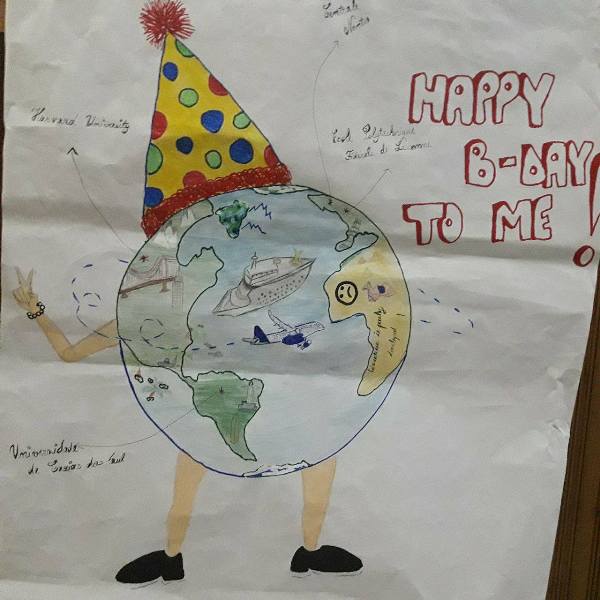 HAPPY
B-DAY
TO ME!
Centrale
Nantes
Harvard University
Ecol Polytechnique
Federale de Lausanne
Universidade
de Caxias do Sul